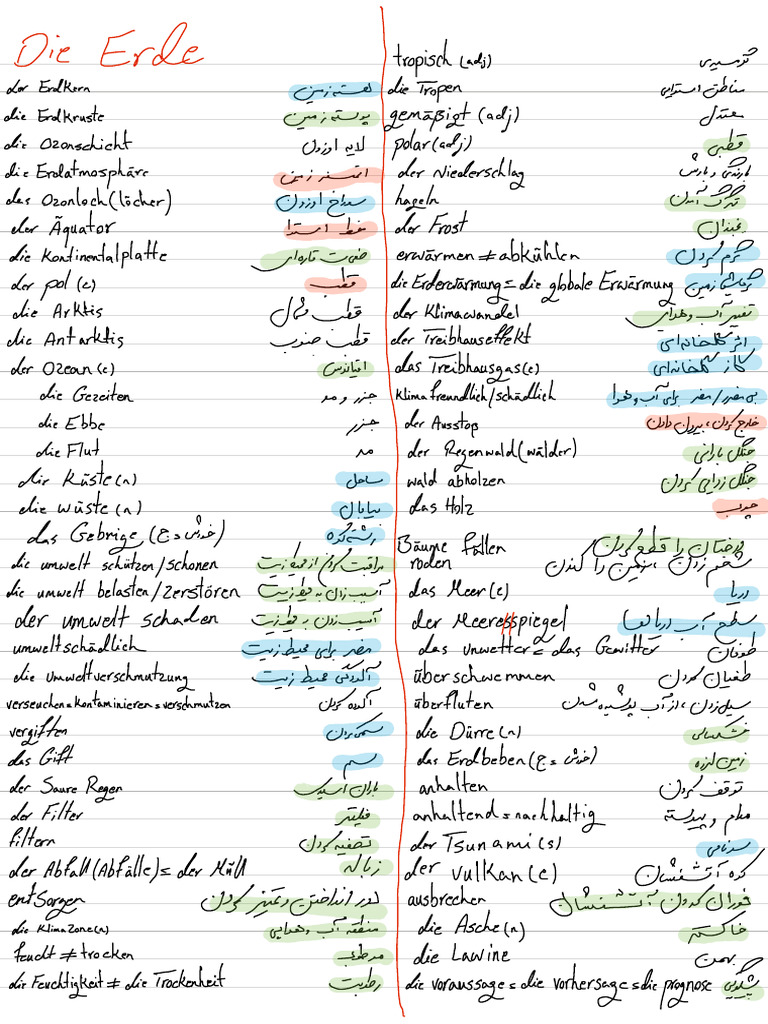 Die Erde
der Erdkern هسته زمین
die Erdkruste پوسته زمین
die Ozonschicht لایه اوزون
die Erdatmosphäre اتمسفر زمین
das Ozonloch (löcher) سوراخ اوزون
der Äquator خط استوا
die Kontinentalplatte صفحت قاره‌ای
der pol (e) قطب
die Arktis قطب شمال
die Antarktis قطب جنوب
der Ozean (e) اقیانوس
die Gezeiten جزر و مد
die Ebbe جزر
die Flut مد
dir Küste (n) ساحل
die wüste (n) بیابان
das Gebrige (خودش = ج) رشته کوه
die umwelt schützen/schonen مراقبت کردن از محیط زیست
die umwelt belasten/zerstören آسیب زدن به محیط زیست
der umwelt schaden آسیب زدن به محیط زیست
umweltschädlich مضر برای محیط زیست
die umweltverschmutzung آلودگی محیط زیست
verseuchen = kontaminieren = verschmutzen آلوده کردن
vergiften سمی کردن
das Gift سم
der Saure Regen باران اسیدی
der Filter فیلتر
filtern تصفیه کردن
der Abfall (Abfälle) = der Müll زباله
entsorgen دور انداختن و تمیز کردن
die Klimazone (n) منطقه آب و هوایی
feucht ≠ trocken مرطوب
die Feuchtigkeit ≠ die Trockenheit رطوبت
tropisch (adj) گرمسیری
die Tropen مناطق استوایی
gemäßigt (adj) معتدل
polar (adj) قطبی
der Niederschlag بارندگی و بارش
hageln تگرگ آمدن
der Frost یخبندان
erwärmen ≠ abkühlen گرم کردن
die Erderwärmung = die globale Erwärmung گرمایش زمین
der Klimawandel تغییر آب و هوای
der Treibhauseffekt اثر گلخانه‌ای
das Treibhausgas (e) گاز گلخانه‌ای
klimafreundlich/schädlich بی مضرر / مضر برای آب و هوا
der Ausstop خارج کردن، بیرون دادن
der Regenwald (wälder) جنگل بارانی
wald abholzen جنگل زدایی کردن
das Holz چوب
Bäume fällen درختان را قطع کردن
roden شخم زدن، زمین را کندن
das Meer (e) دریا
der Meeresspiegel سطح آب دریاها
das unwetter = das Gewitter طوفان
überschwemmen طغیان کردن
überfluten سیل زدن، از آب پوشیده شدن
die Dürre (n) خشکسالی
das Erdbeben (خودش = ج) زمین لرزه
anhalten توقف کردن
anhaltend = nachhaltig مداوم و پیوسته
der Tsunami (s) سونامی
der vulkan (e) کوه آتشفشان
ausbrechen فوران کردن آتشفشان
die Asche (n) خاکستر
die Lawine بهمن
die voraussage = die vorhersage = die prognose پیشگویی